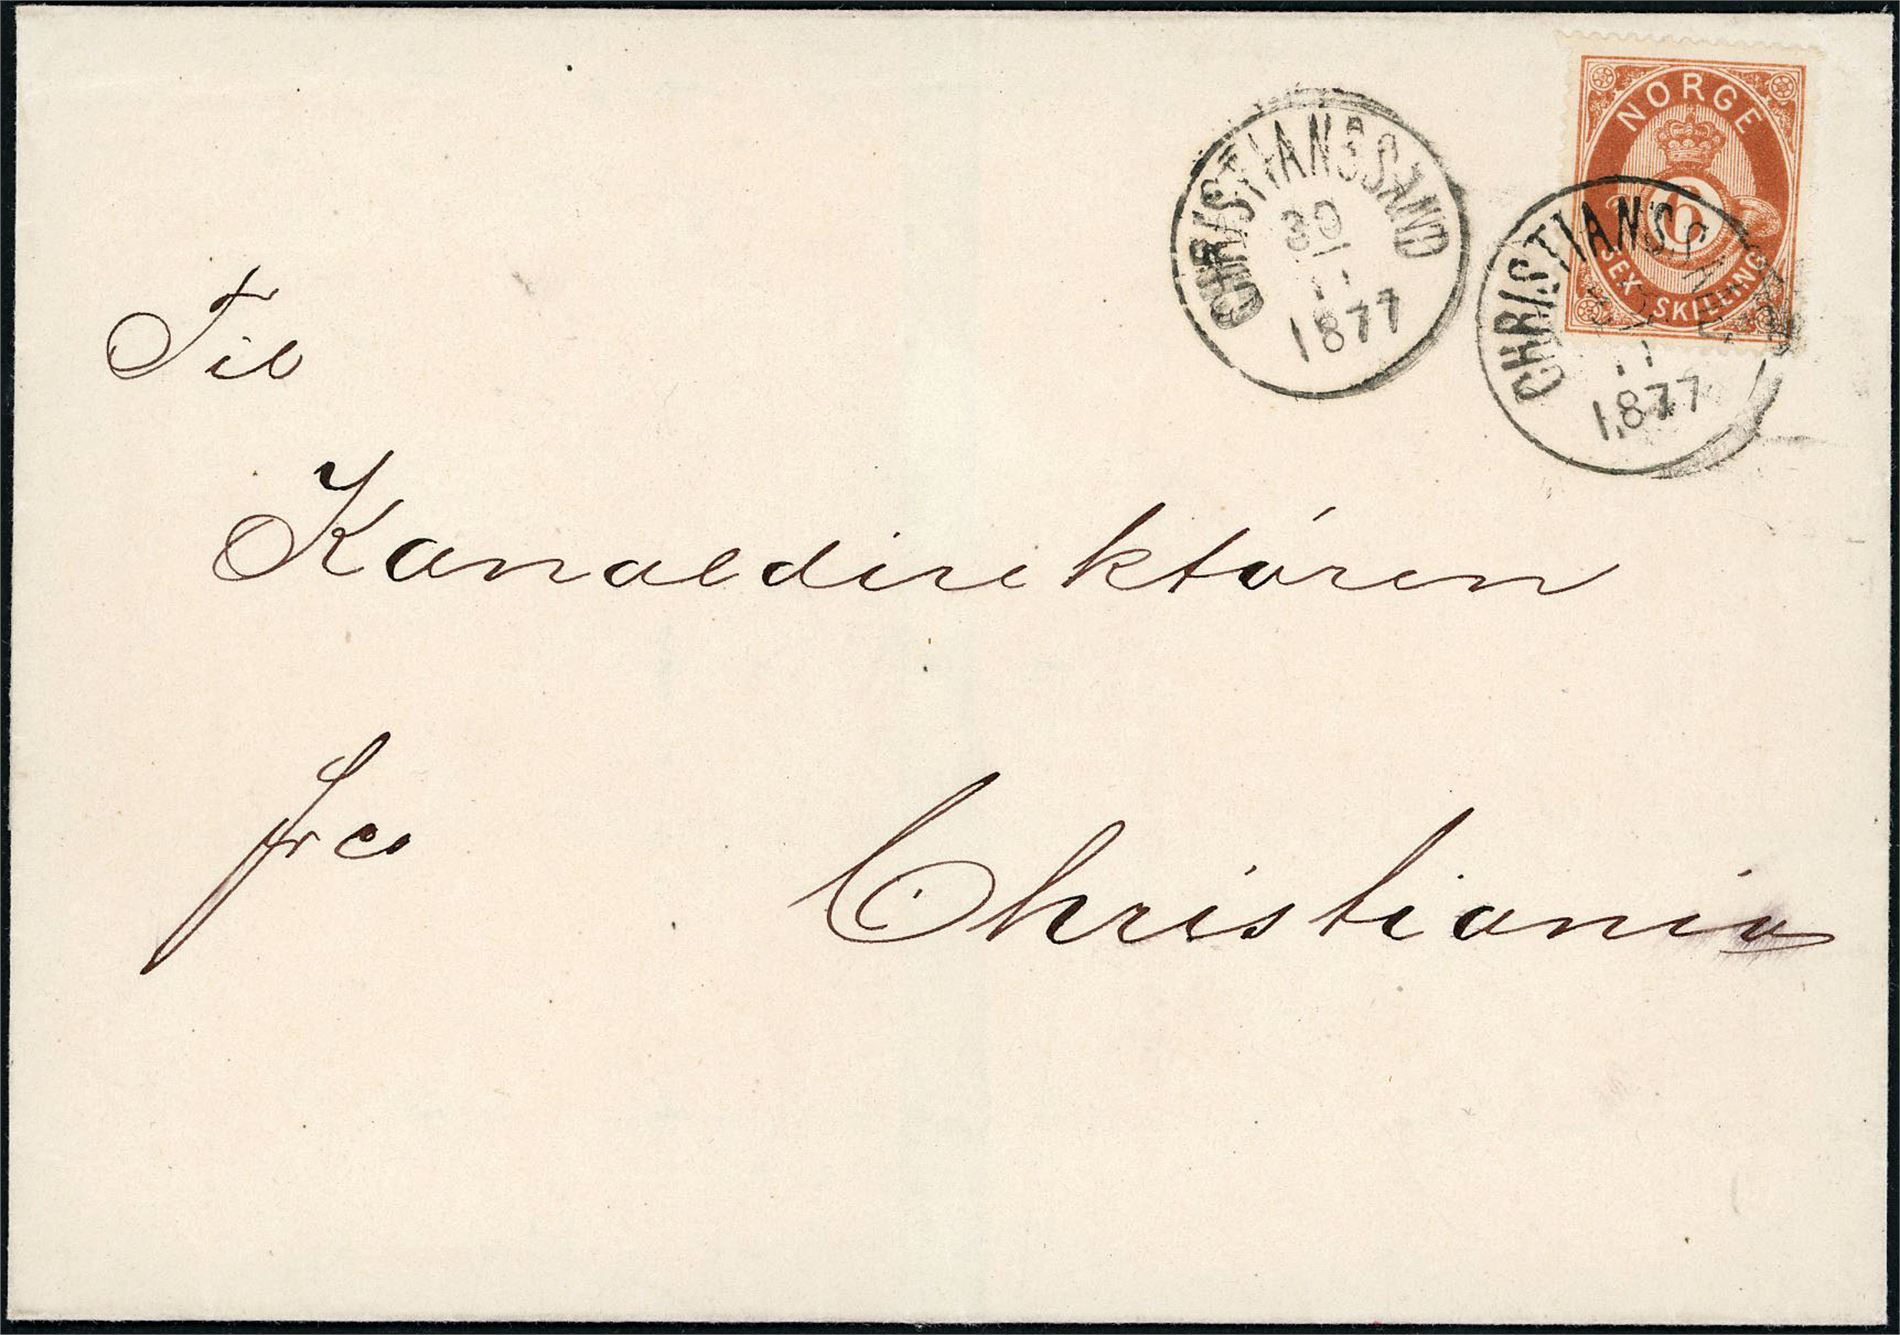 NORGE
6
SEX SKILLING
CHRISTIANSSAND
30
11
1877
CHRISTIANSSAND
30
11
1877
Til
Kanaldirektören
frco
Christiania